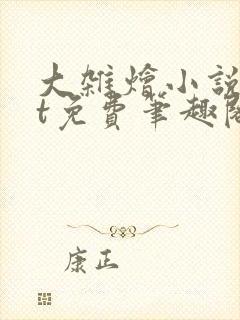 大雜燴小說
t免費筆趣閣
康正